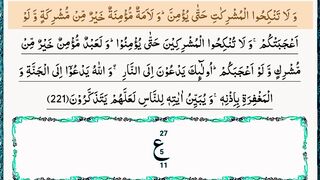 وَ لَا تَنْكِحُوا الْمُشْرِكٰتِ حَتّٰى یُؤْمِنَّ ؕ وَ لَاَمَةٌ مُّؤْمِنَةٌ خَیْرٌ مِّنْ مُّشْرِكَةٍ وَّ لَوْ
اَعْجَبَتْكُمْ ۚ وَ لَا تُنْكِحُوا الْمُشْرِكِیْنَ حَتّٰى یُؤْمِنُوْا ؕ وَ لَعَبْدٌ مُّؤْمِنٌ خَیْرٌ مِّنْ
مُّشْرِكٍ وَّ لَوْ اَعْجَبَكُمْ ؕ اُولٰٓىٕكَ یَدْعُوْنَ اِلَى النَّارِ ۖۚ وَ اللّٰهُ یَدْعُوْۤا اِلَى الْجَنَّةِ وَ
الْمَغْفِرَةِ بِاِذْنِهٖ ۚ وَ یُبَیِّنُ اٰیٰتِهٖ لِلنَّاسِ لَعَلَّهُمْ یَتَذَكَّرُوْنَ۠ (221)
27
ع
5
11